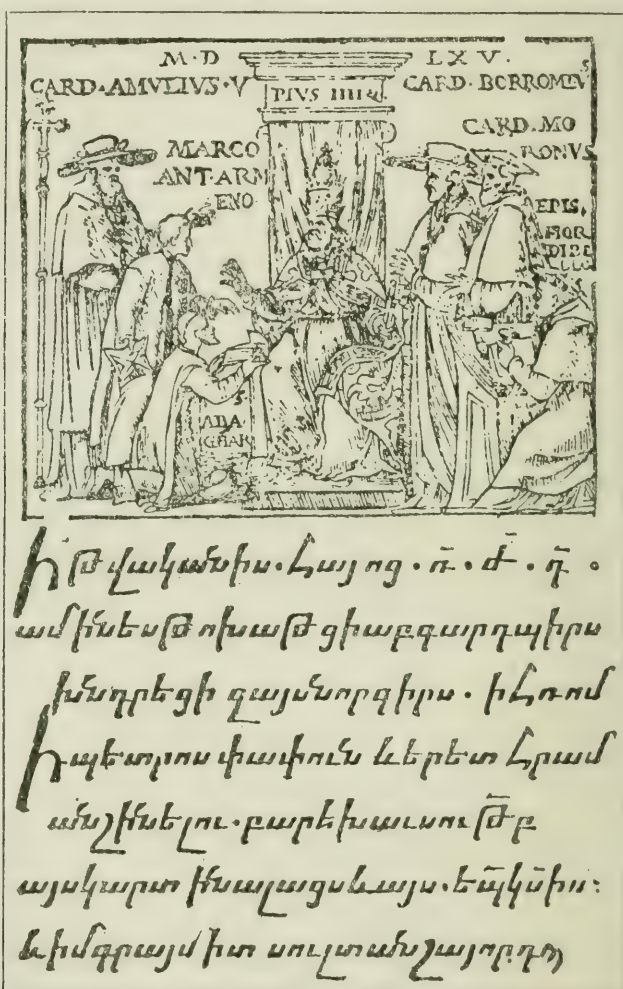 M·D LXV·
CARD·AMVLIVS·V PIVS IIII CARD·BORROMEVS
MARCO CARD·MO
ANTARM RONVS
ENO EPIS·
Ի թվականիս· Հայոց · ռ̄ · ժ̄ · դ̄ ·
ամ ինես թոխաթցի աբգար դպիրս
խնդրեցի զայս նոր գիրս · ի Հռոմ
Ի պետրոս փափուն և երետ Հրամ
ան շինելու · բարեխաւսութ̄բ
այս կարտինալացս և այս · եպ̄կս̄իս։
և իմ սուլտանշայ